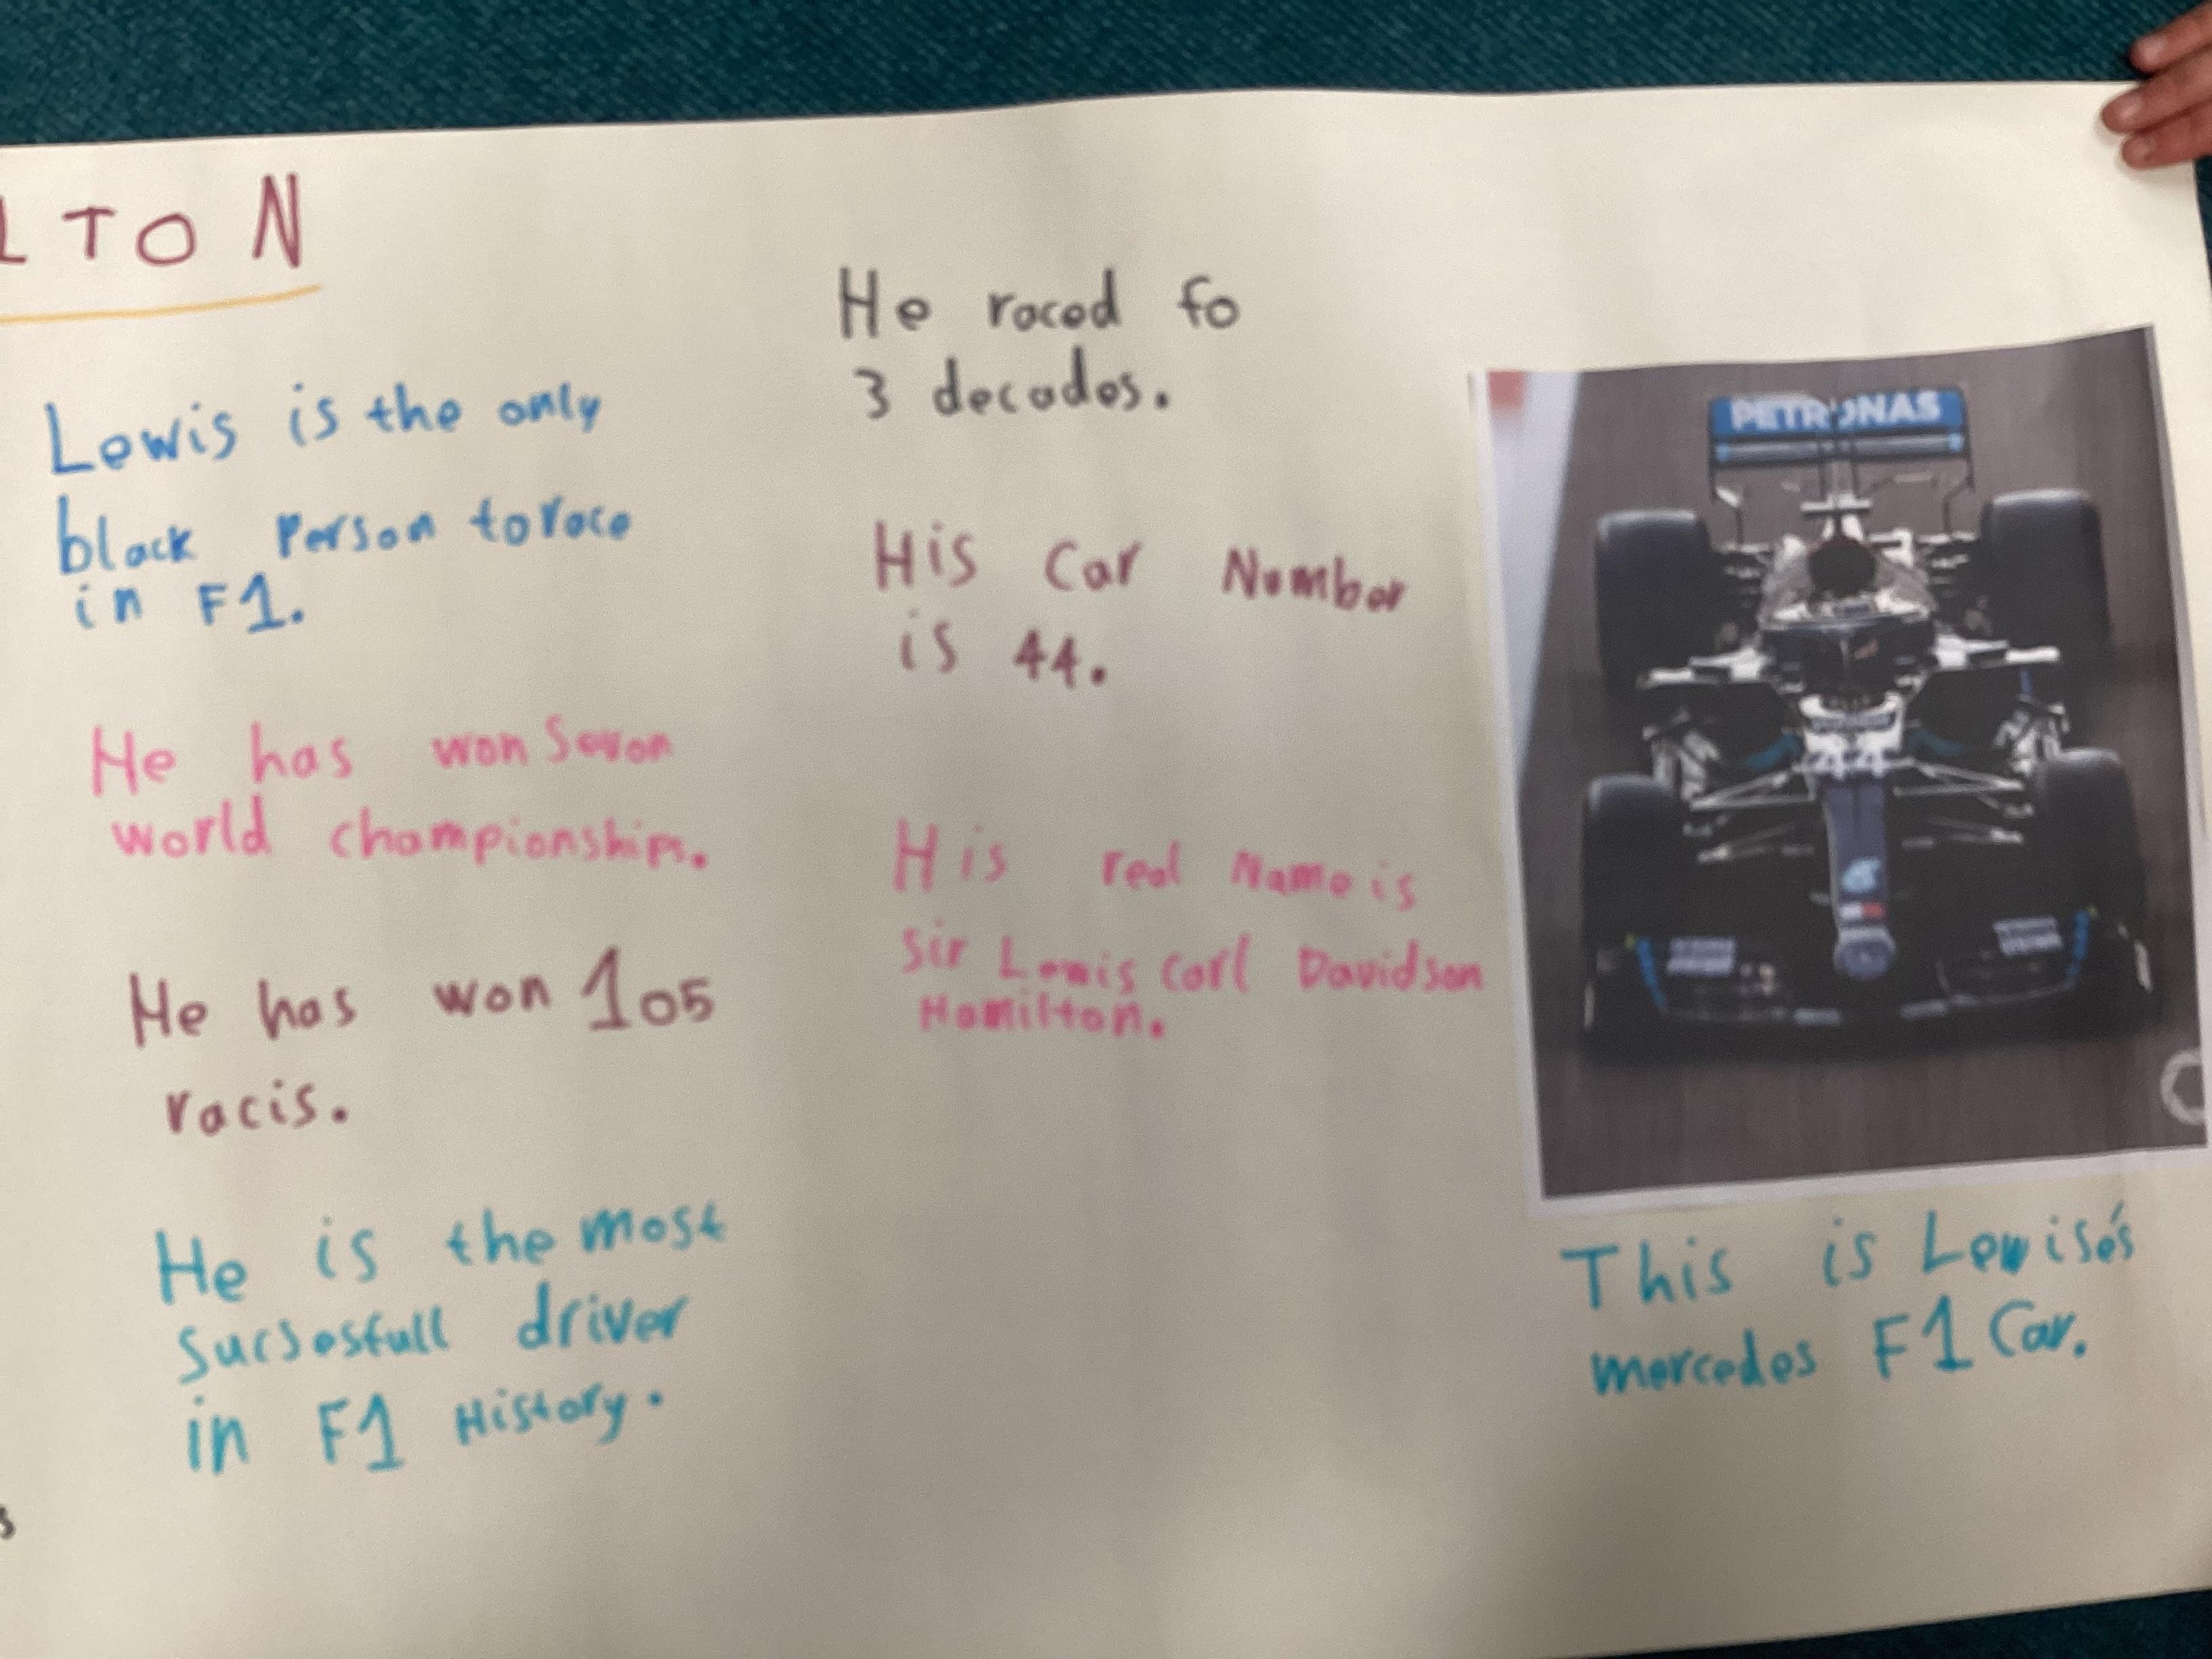 LTON
Lewis is the only
black Person to race
in F1.
He has won Seven
world championships.
He has won 105
racis.
He is the most
sucsesfull driver
in F1 History.
He raced fo
3 decades.
His Car Number
is 44.
His real Name is
Sir Lewis Carl Davidson
Hamilton.
PETRONAS
44
This is Lewis's
mercedes F1 Car.